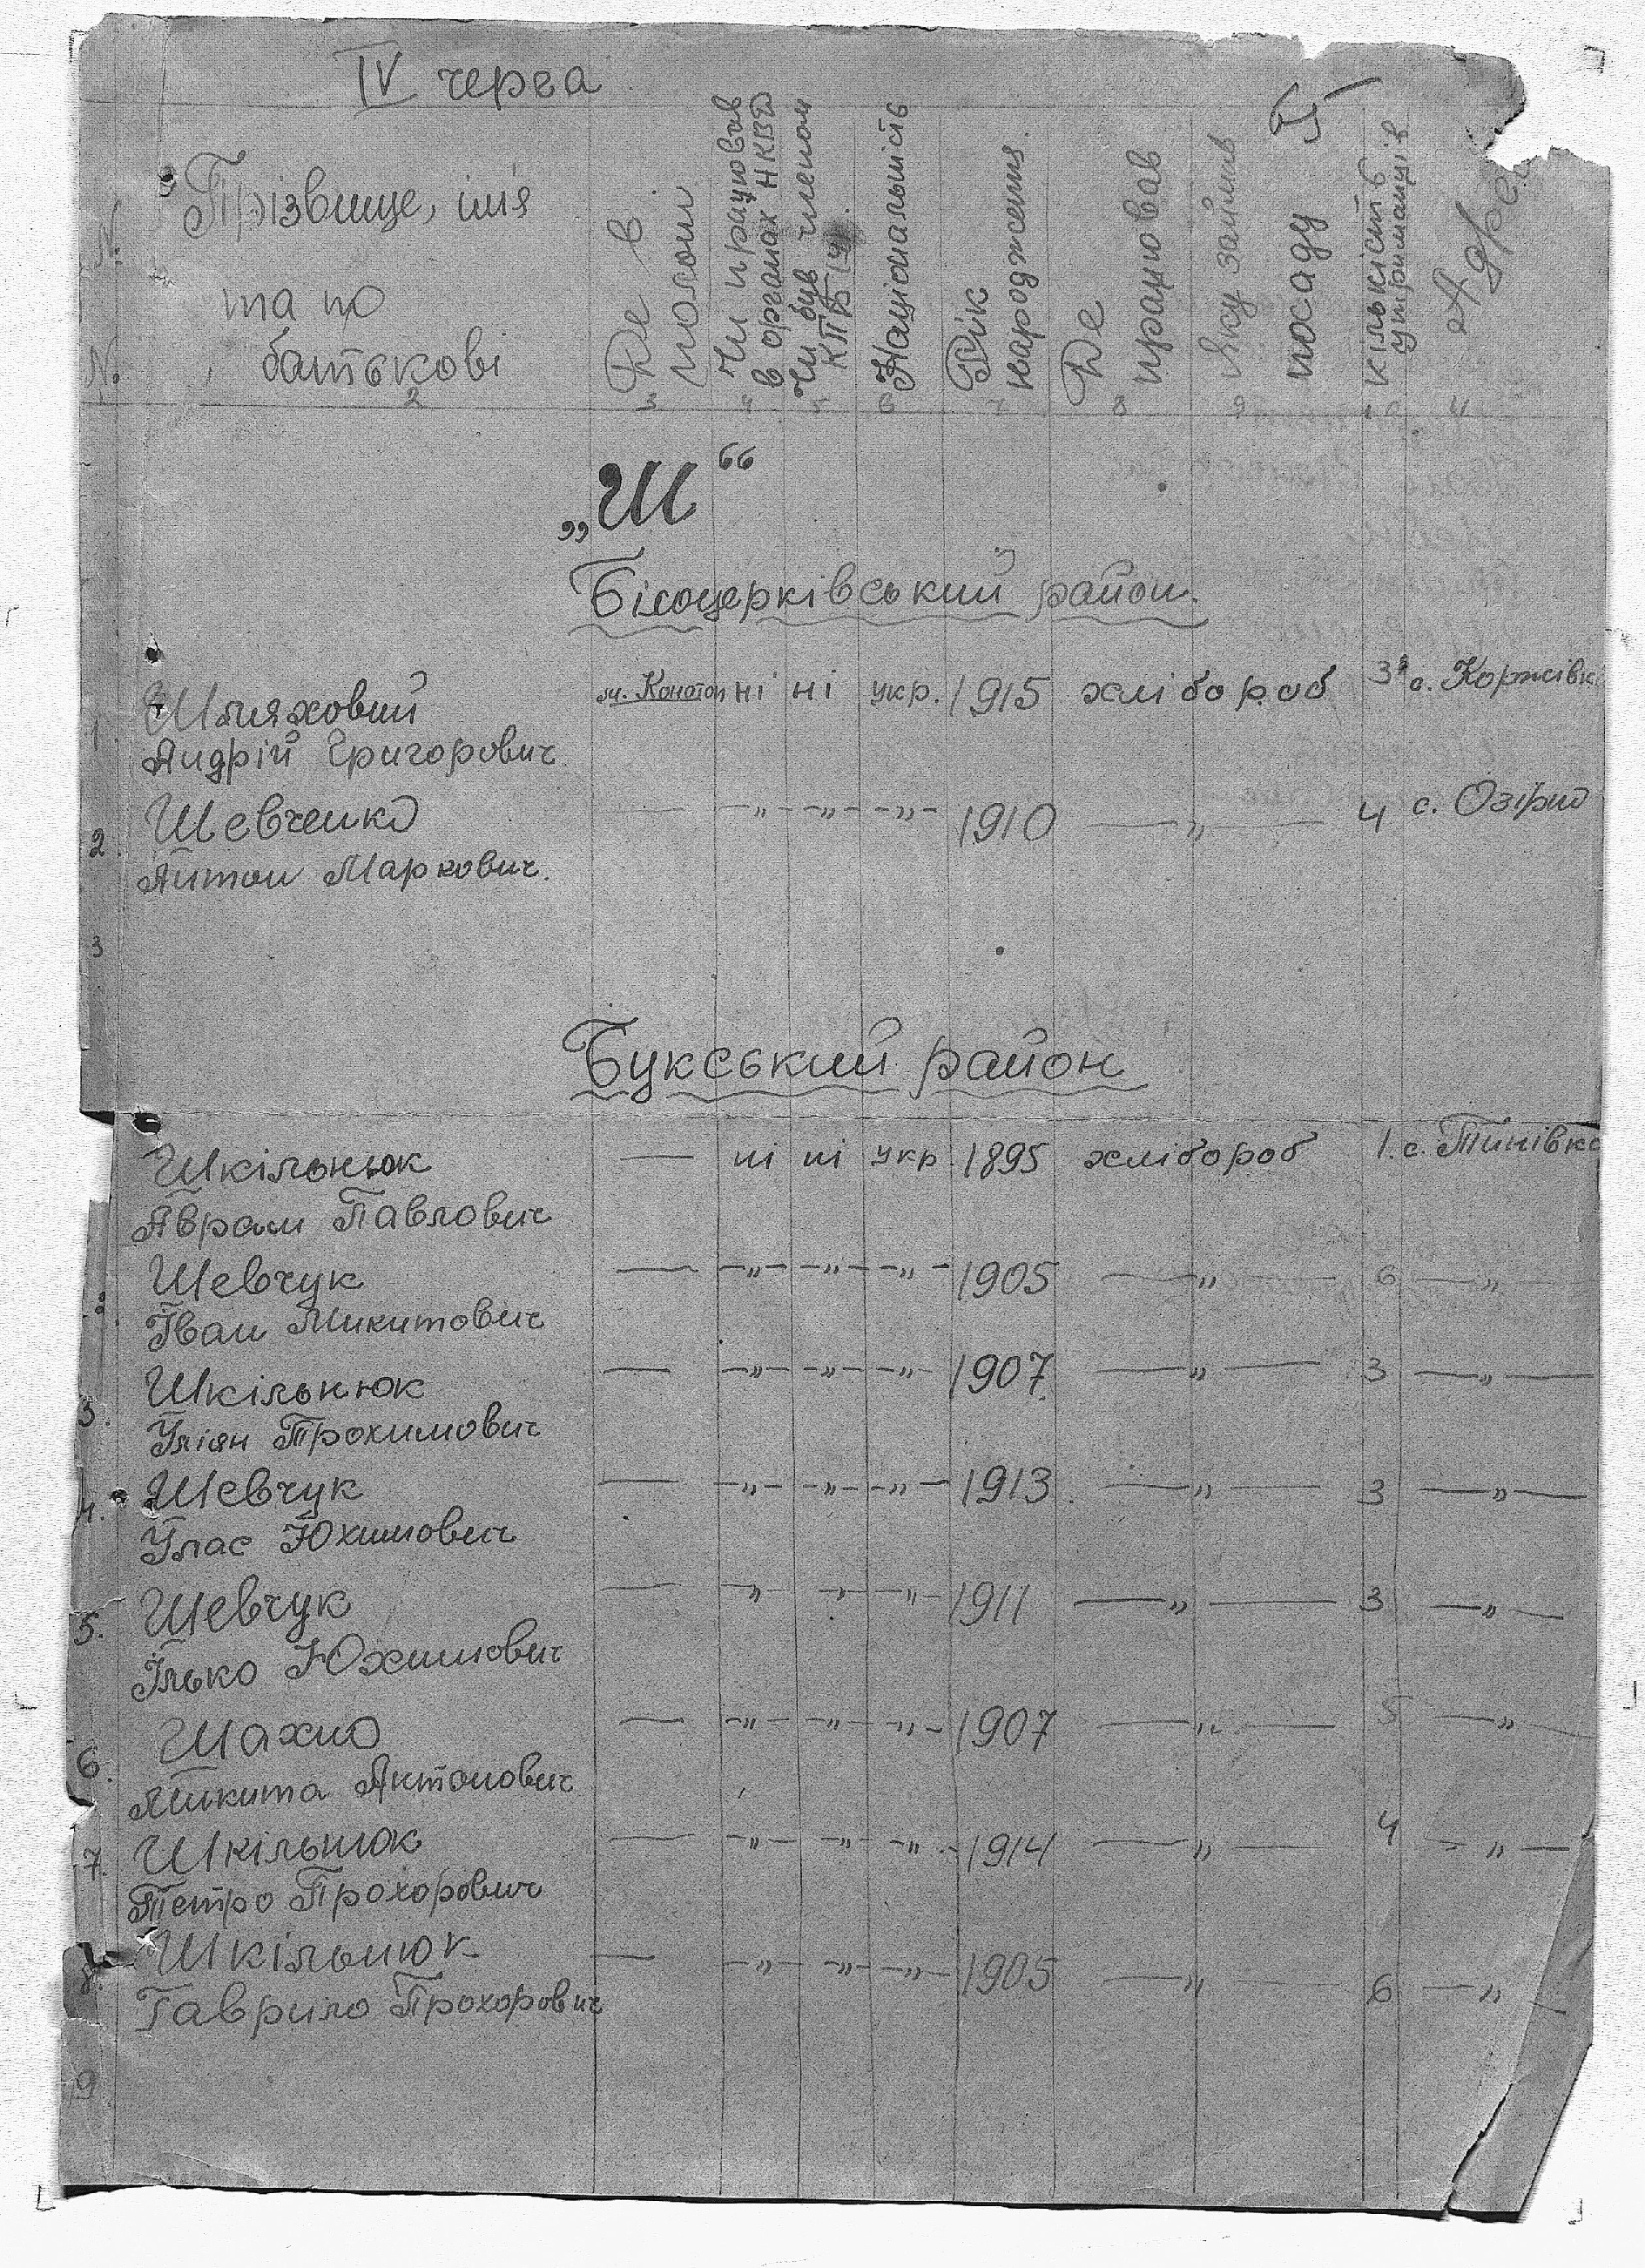 IV черга
№ №
Прізвище, ім'я
та по
батькові
Де в
полоні
Чи працював
в органах НКВД
Чи був членом
КПб(у)
Національність
Рік
народження
Де
працював
Яку займав
посаду
Кількість
утриманців
Адреса
2 3 4 5 6 7 8 9 10 11
„Ш“
Білоцерківський район.
1 Шляховий м. Конотоп ні ні укр. 1915 хлібороб 3 с. Коржівка
Андрій Григорович
2. Шевченко — — „ — „ — „ — 1910 — „ — 4 с. Озірно
Антон Маркович.
3
Букський район
Шкільнюк — ні ні укр. 1895 хлібороб 1. с. Тинівка
Аврам Павлович
Шевчук — — „ — „ — „ — 1905 — „ — 6 — „ —
Іван Микитович
3. Шкільнюк — — „ — „ — „ — 1907. — „ — 3 — „ —
Уліян Трохимович
4. Шевчук — — „ — „ — „ — 1913. — „ — 3 — „ —
Улас Юхимович
5. Шевчук — — „ — „ — „ — 1911 — „ — 3 — „ —
Ілько Юхимович
6. Шахно — — „ — „ — „ — 1907 — „ — 5 — „ —
Микита Антонович
7. Шкільнюк — — „ — „ — „ — 1914 — „ — 4 — „ —
Петро Прохорович
8. Шкільнюк — — „ — „ — „ — 1905 — „ — 6 — „ —
Гаврило Прохорович
9